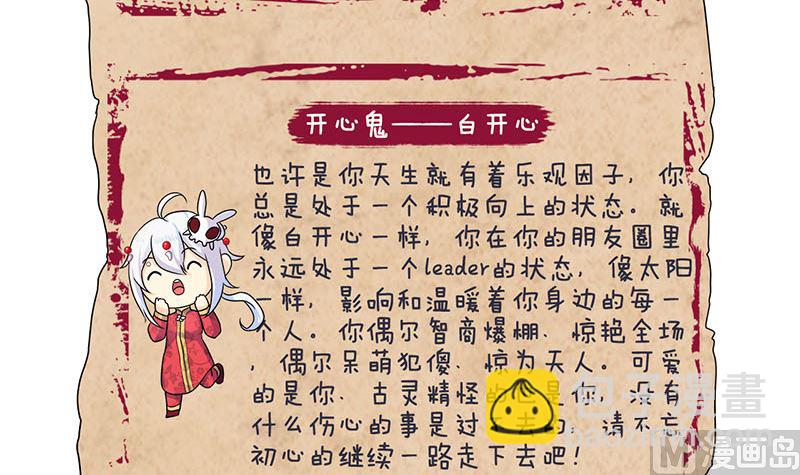 开心鬼——白开心
也许是你天生就有着乐观因子，你
总是处于一个积极向上的状态。就
像白开心一样，你在你的朋友圈里
永远处于一个leader的状态，像太阳
一样，影响和温暖着你身边的每一
个人。你偶尔智商爆棚、惊艳全场
，偶尔呆萌犯傻、惊为天人。可爱
的是你、古灵精怪的也是你，没有
什么伤心的事是过不去的，请不忘
初心的继续一路走下去吧！
包子漫畫
漫画岛